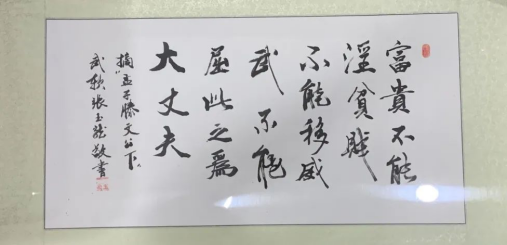 富貴不能
淫貧賤
不能移威
武不能
屈此之為
大丈夫
摘"孟子滕文公下"
張玉龍敬書